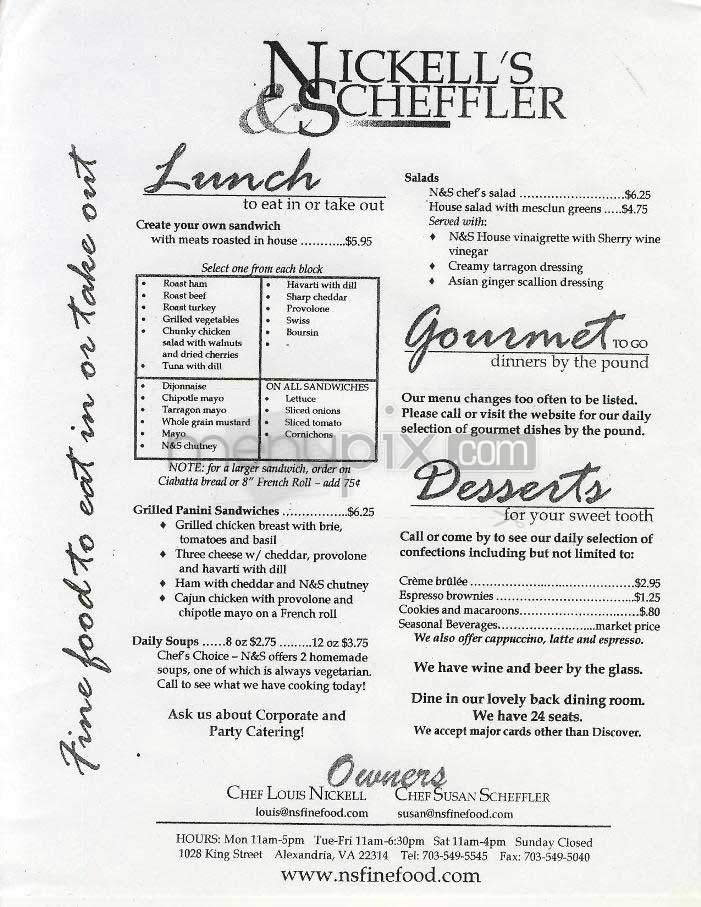 NICKELL'S
& SCHEFFLER
Fine food to eat in or take out
Lunch
to eat in or take out
Create your own sandwich
with meats roasted in house ............$5.95
Select one from each block
• Roast ham
• Roast beef
• Roast turkey
• Grilled vegetables
• Chunky chicken
salad with walnuts
and dried cherries
• Tuna with dill
• Havarti with dill
• Sharp cheddar
• Provolone
• Swiss
• Boursin
•
• Dijonnaise
• Chipotle mayo
• Tarragon mayo
• Whole grain mustard
• Mayo
• N&S chutney
ON ALL SANDWICHES
• Lettuce
• Sliced onions
• Sliced tomato
• Cornichons
NOTE: for a larger sandwich, order on
Ciabatta bread or 8" French Roll – add 75¢
Grilled Panini Sandwiches ................$6.25
♦ Grilled chicken breast with brie,
tomatoes and basil
♦ Three cheese w/ cheddar, provolone
and havarti with dill
♦ Ham with cheddar and N&S chutney
♦ Cajun chicken with provolone and
chipotle mayo on a French roll
Daily Soups ......8 oz $2.75 .........12 oz $3.75
Chef's Choice – N&S offers 2 homemade
soups, one of which is always vegetarian.
Call to see what we have cooking today!
Ask us about Corporate and
Party Catering!
Salads
N&S chef's salad ...........................$6.25
House salad with mesclun greens .....$4.75
Served with:
♦ N&S House vinaigrette with Sherry wine
vinegar
♦ Creamy tarragon dressing
♦ Asian ginger scallion dressing
Gourmet TO GO
dinners by the pound
Our menu changes too often to be listed.
Please call or visit the website for our daily
selection of gourmet dishes by the pound.
menupix.com
Desserts
for your sweet tooth
Call or come by to see our daily selection of
confections including but not limited to:
Crème brûlée ..........................................$2.95
Espresso brownies ...................................$1.25
Cookies and macaroons..............................$.80
Seasonal Beverages.........................market price
We also offer cappuccino, latte and espresso.
We have wine and beer by the glass.
Dine in our lovely back dining room.
We have 24 seats.
We accept major cards other than Discover.
Owners
CHEF LOUIS NICKELL CHEF SUSAN SCHEFFLER
louis@nsfinefood.com susan@nsfinefood.com
HOURS: Mon 11am-5pm Tue-Fri 11am-6:30pm Sat 11am-4pm Sunday Closed
1028 King Street Alexandria, VA 22314 Tel: 703-549-5545 Fax: 703-549-5040
www.nsfinefood.com